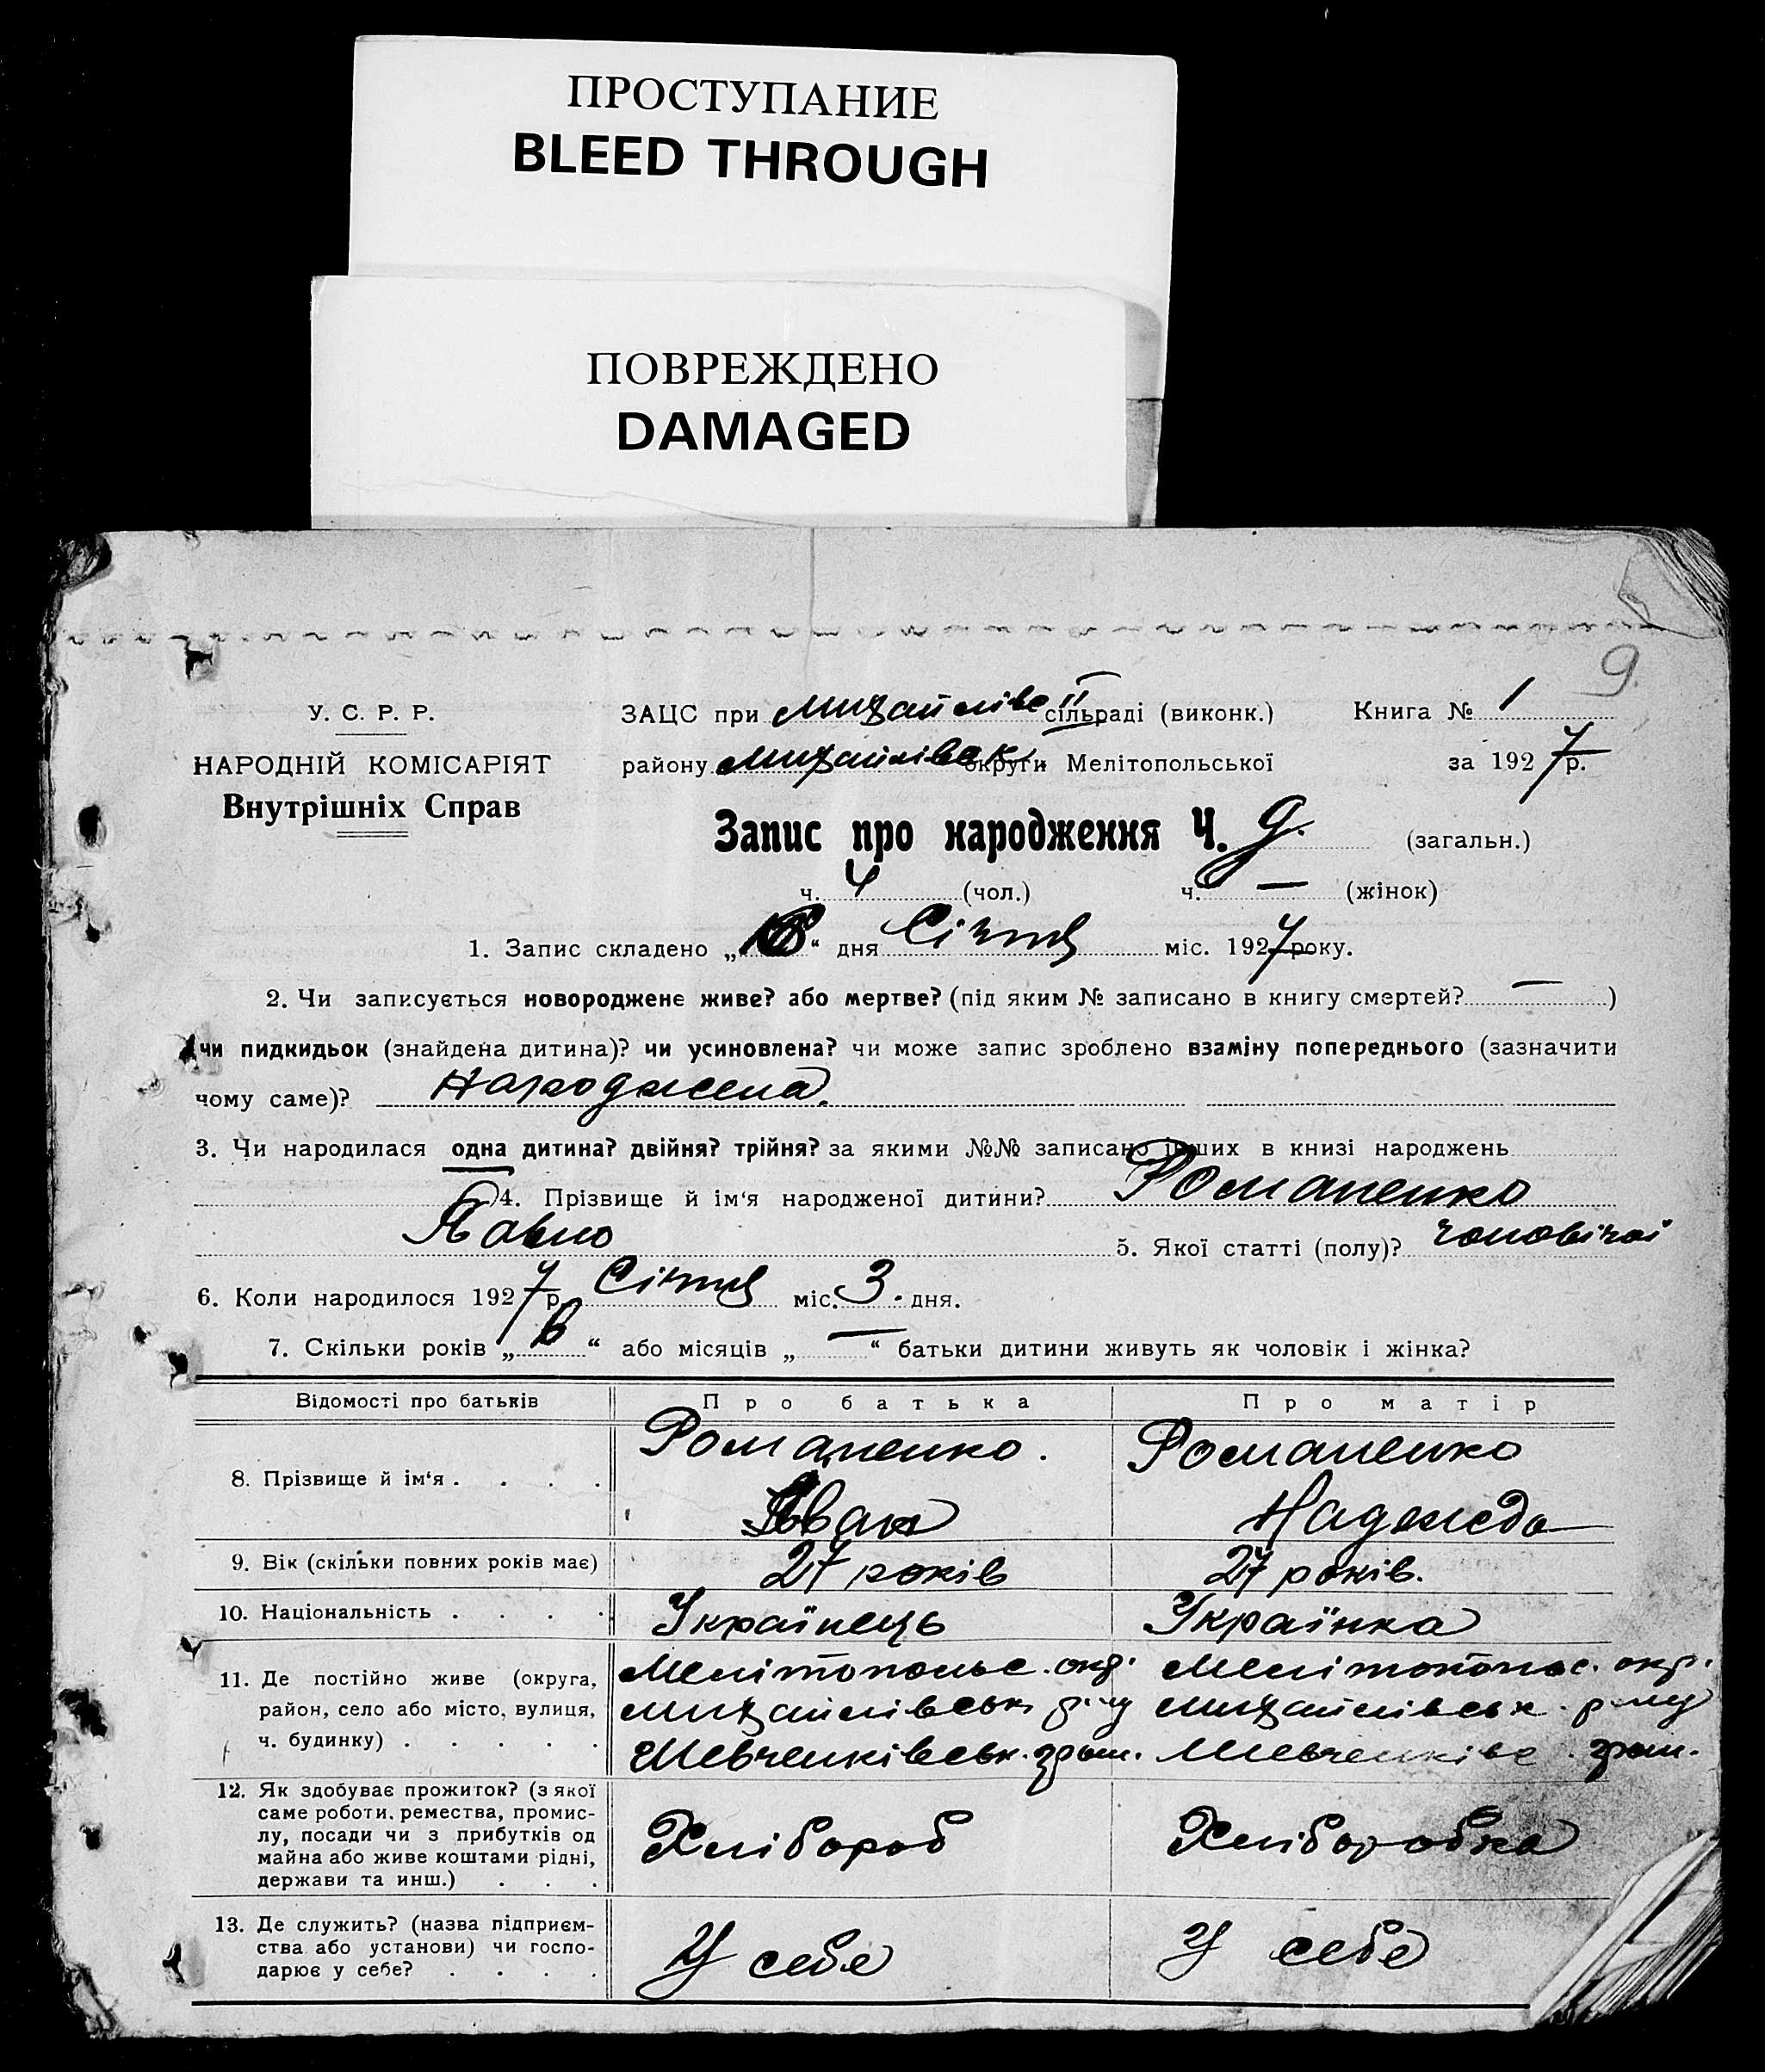 ПРОСТУПАНИЕ
BLEED THROUGH
ПОВРЕЖДЕНО
DAMAGED
9.
У. С. Р. Р.
НАРОДНІЙ КОМІСАРІЯТ
Внутрішніх Справ
ЗАЦС при Михайлівс II сільраді (виконк.) Книга № 1
району Михайлівськ. округи Мелітопольської за 1927 р.
Запис про народження Ч. 9. (загальн.)
ч. 4 (чол.) ч. — (жінок)
1. Запис складено „ “ дня Січня міс. 1927 року.
2. Чи записується новороджене живе? або мертве? (під яким № записано в книгу смертей? — )
чи пидкидьок (знайдена дитина)? чи усиновлена? чи може запис зроблено взаміну попереднього (зазначити
чому саме)? Народжена.
3. Чи народилася одна дитина? двійня? трійня? за якими №№ записано інших в книзі народжень
4. Прізвище й ім‘я народженої дитини? Романенко
Павло 5. Якої статті (полу)? чоловічої
6. Коли народилося 1927 р. Січня міс. 3. дня.
7. Скільки років „ “ або місяців „ — “ батьки дитини живуть як чоловік і жінка?
Відомості про батьків Про батька Про матір
8. Прізвище й ім‘я . . . . Романенко. Романенко
Іван Надежда
9. Вік (скільки повних років має) 27 років 27 років.
10. Національність . . . . Українець Українка
11. Де постійно живе (округа, Мелітопольс. окр. Мелітопольс. окр.
район, село або місто, вулиця, Михайлівськ. р-ну Михайлівськ. р-ну
ч. будинку) . . . . . Шевченківськ. гром. Шевченківс. гром.
12. Як здобуває прожиток? (з якої
саме роботи, ремества, промис-
лу, посади чи з прибутків од Хлібороб Хліборобка
майна або живе коштами рідні,
держави та инш.) . . .
13. Де служить? (назва підприєм-
ства або установи) чи госпо- У себе У себе
дарює у себе? . . . .